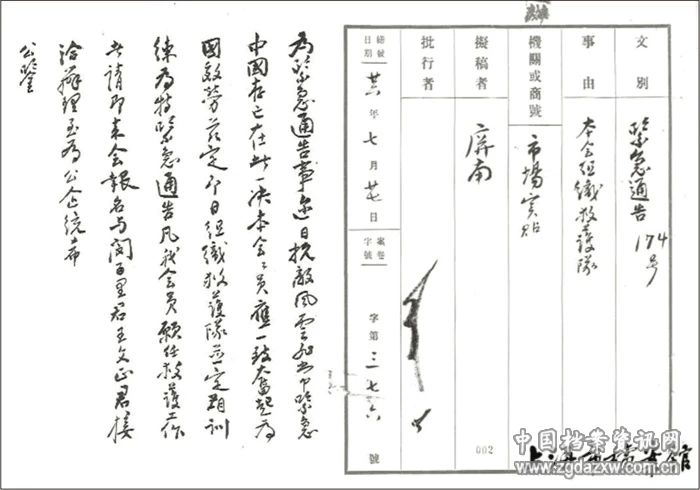 文別 緊急通告 174号
事由 本会组織救護隊
機關或商號 市場實貼
擬稿者 屏南
批行者
繕發日期 廿六年七月廿七日
案卷字號 字第三七六號
002
為緊急通告事近日抗敵風雲非常緊急
中國存亡在此一决本会会員應一致奮起為
國效勞兹定即日组織救護隊並定期訓
練為特緊急通告凡我会員願任救護工作
者請即来会報名与闵百里君王文正君接
洽辦理至為公企统希
公鑒
上海市档案馆
中国档案资讯网
www.zgdazxw.com.cn